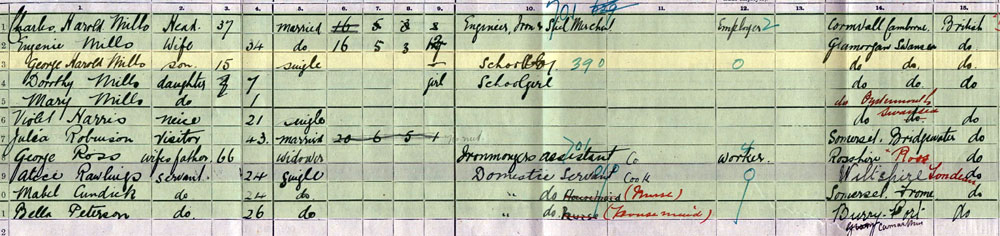 1. 2. 3. 4. 5. 6. 7. 8. 9. 10. 11. 12. 13. 14. 15.
1 Charles Harold Mills Head 37 married 16 5 3 2 Engineer, Iron & Steel Mercht Employer 2 Cornwall Camborne British
2 Eugenie Mills Wife 34 do 16 5 3 2 Glamorgan Swansea do
3 George Harold Mills son. 15 single Schoolboy 390 0 do. do. do.
4 Dorothy Mills daughter 7 girl Schoolgirl do do do
5 Mary Mills do 1 do Oystermouth Swansea do
6 Violet Harris neice 21 single do do do
7 Julia Robinson Visitor 43. married 20 6 5 1 Somerset. Bridgewater do
8 George Ross wife's father 66 widower Ironmongers assistant Co Worker. Ross do
9 Rawlings servant. 24 Single Domestic Servant Cook Wiltshire London
0 Mabel Cundick do. 24 do " do Housemaid (Nurse) Somerset. Frome do
1 Bella Peterson do. 26 do " do. Nurse (Housemaid) Burry-Port do
2 Carmarthen